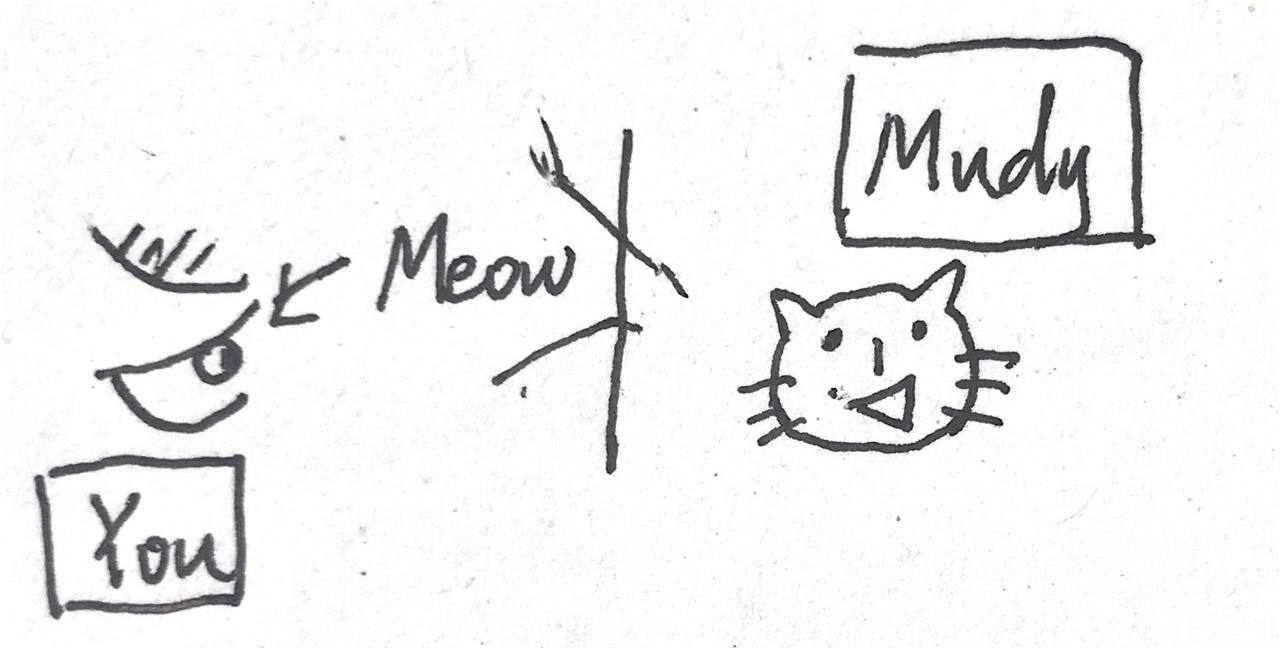 Mudy
Meow
You